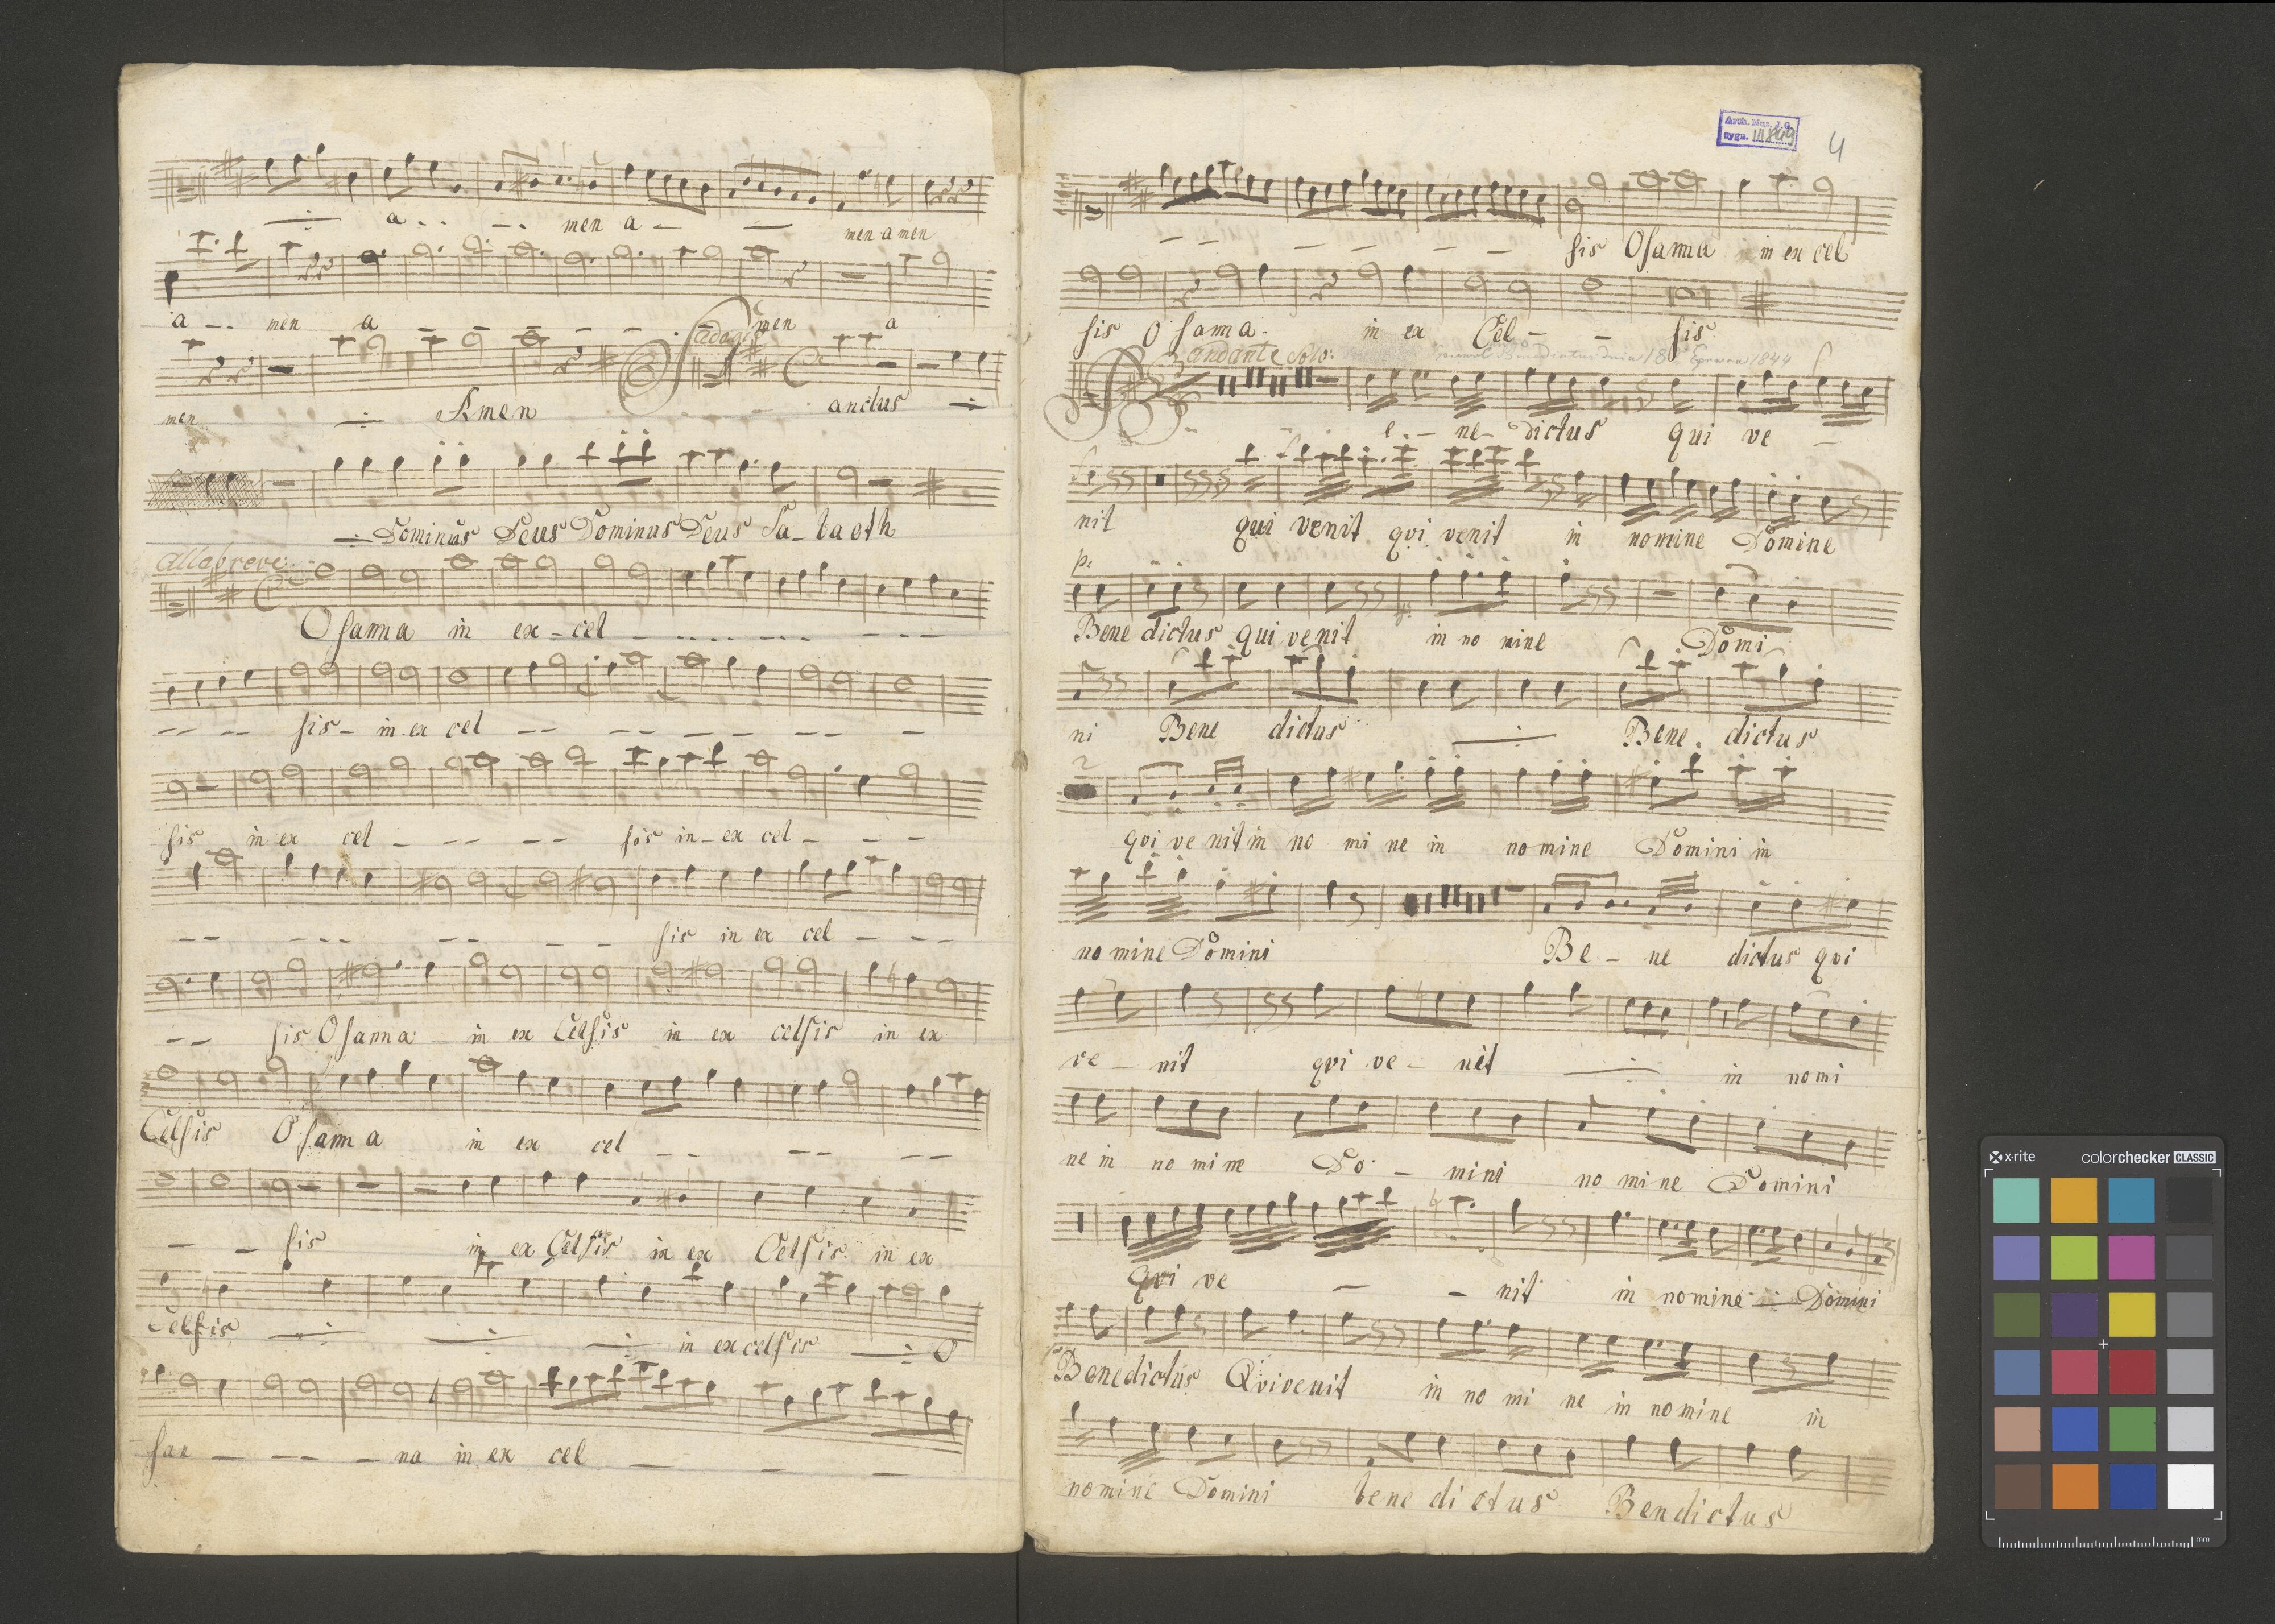 a men a men amen
a men a men a
Adagio
men Amen Sanctus
Dominus Deus Dominus Deus Sa-baoth
Allabreve:
Osanna in ex-cel
sis- in ex cel
sis in ex cel sis in-ex cel-
sis in ex cel
sis Osanna in ex Celsis in ex celsis in ex
Celsis Osanna in ex cel
sis in ex Celsis in ex Celsis in ex
Celsis in excelsis O
san na in ex cel
Arch. Muz. J. G.
sygn.
4
sis Osanna in ex cel
sis Osanna. in ex Cel- sis
andante Solo:
1844
Be-ne-dictus qui ve
nit qui venit qvi venit in nomine Domine
p:
Bene dictus qui venit in no mine Domi
ni Bene dictus Bene. dictus
2
qvi ve nit in no mi ne in nomine Domini in
nomine Domini Be- ne dictus qvi
ve- nit qvi ve- nit in nomi
ne in no mine Do- mini no mi ne Domini
qvi ve nit in nomine Domini
Benedictus Qvivenit in no mi ne in nomine in
nomine Domini bene dictus Bendictus
x-rite colorchecker CLASSIC
mm